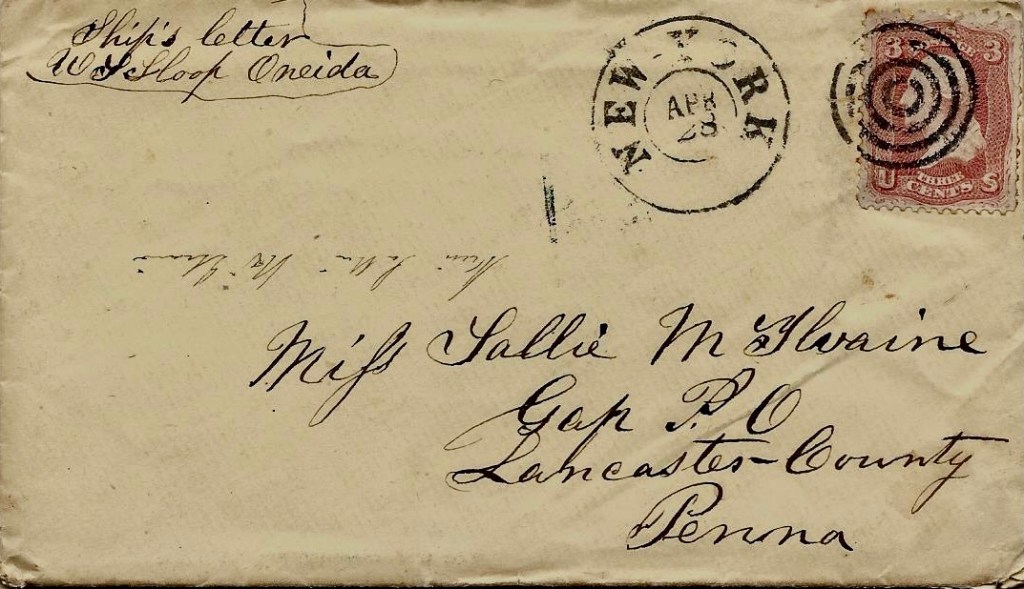 Ship's letter
U S Sloop Oneida
NEW-YORK
APR
28
3 3
U S
THREE
CENTS
Miss Sallie M Ilvaine
Gap P. O
Lancaster County
Penna